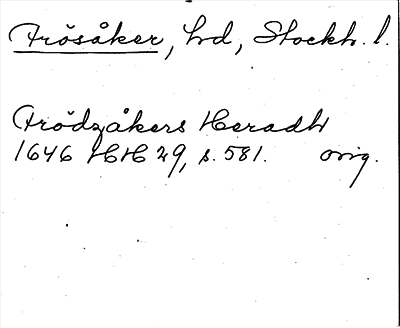 Frösåker, hd, Stockh. l.
Frödzåkers Heradh
1646 HH 29, s. 581. orig.